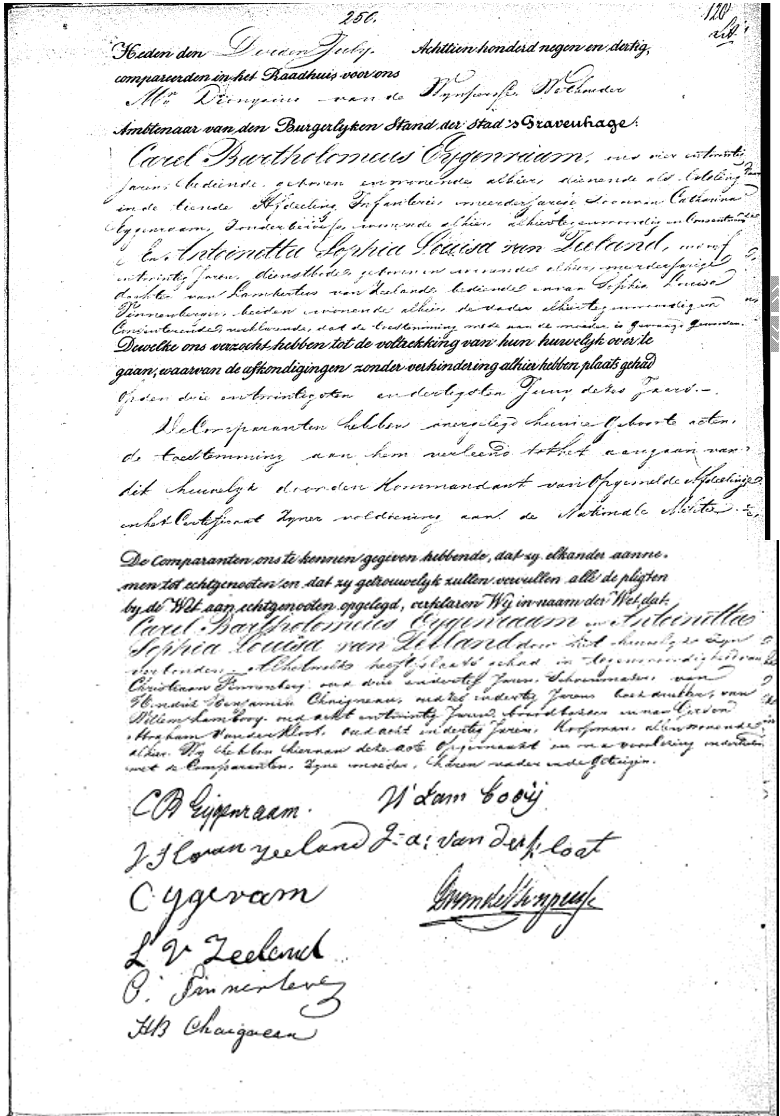 250.
120
Heden den Derden July. Achttien honderd negen en dertig,
compareerden in het Raadhuis voor ons
Mr Dionysius van de Wynpersse Wethouder
Ambtenaar van den Burgerlyken Stand der Stad 's Gravenhage:
Carel Bartholomeus Eygenraam, oud vier entwintig
Jaren, bediende, geboren en wonende alhier, dienende als
in de tiende Afdeeling Infanterie, meerderjarige Zoon van Catharina
Eygenraam, Zonder beroep, wonende alhier, alhier tegenwoordig en Consenterende
En Antoinetta Sophia Louisa van Zeeland, oud
entwintig Jaren, dienstbode, geboren en wonende alhier, meerderjarige
dochter van Lambertus van Zeeland, bediende en van Sophia Louisa
beiden wonende alhier, de vader alhier tegenwoordig en
Consenterende, verklarende, dat de toestemming mede aan de moeder is gevraagd geworden.
Dewelke ons verzocht hebben tot de voltrekking van hun huwelyk over te
gaan, waarvan de afkondigingen zonder verhindering alhier hebben plaats gehad
op den drie entwintigsten en dertigsten Juny dezes Jaars.—
De Comparanten hebben overgelegd hunne Geboorte acten,
de toestemming aan hem verleend tot het aangaan van
dit huwelyk door den Kommandant van Opgemelde Afdeeling
en het Certificaat zyner voldoening aan de Nationale Militie.
De Comparanten ons te kennen gegeven hebbende, dat zy elkander aanne-
men tot echtgenooten en dat zy getrouwelyk zullen vervullen alle de pligten
by de Wet aan echtgenooten opgelegd, verklaren Wy in naam der Wet, dat
Carel Bartholomeus Eygenraam en Antoinetta
Sophia Louisa van Zeeland door het huwelyk zyn
verbonden. Alhetwelk heeft plaats gehad in tegenwoordigheid van
Christiaan oud drie endertig Jaren, Schoenmaker, van
Hendrik Benjamin Chaigneau, oud zes en dertig Jaren, boekdrukker, van
Willem Lambooy, oud acht entwintig Jaren, en van
Abraham Van der Kloot, oud acht en dertig Jaren, Koopman, allen wonende
alhier. Wy hebben hiervan deze acte opgemaakt en na voorlezing onderteekend
met de Comparanten, zyne moeder, haren vader en de Getuigen.
C B Eygenraam. W Lambooij
van Zeeland J: a: van der kloot
C ygeram
L V Zeeland
HB Chaigneau